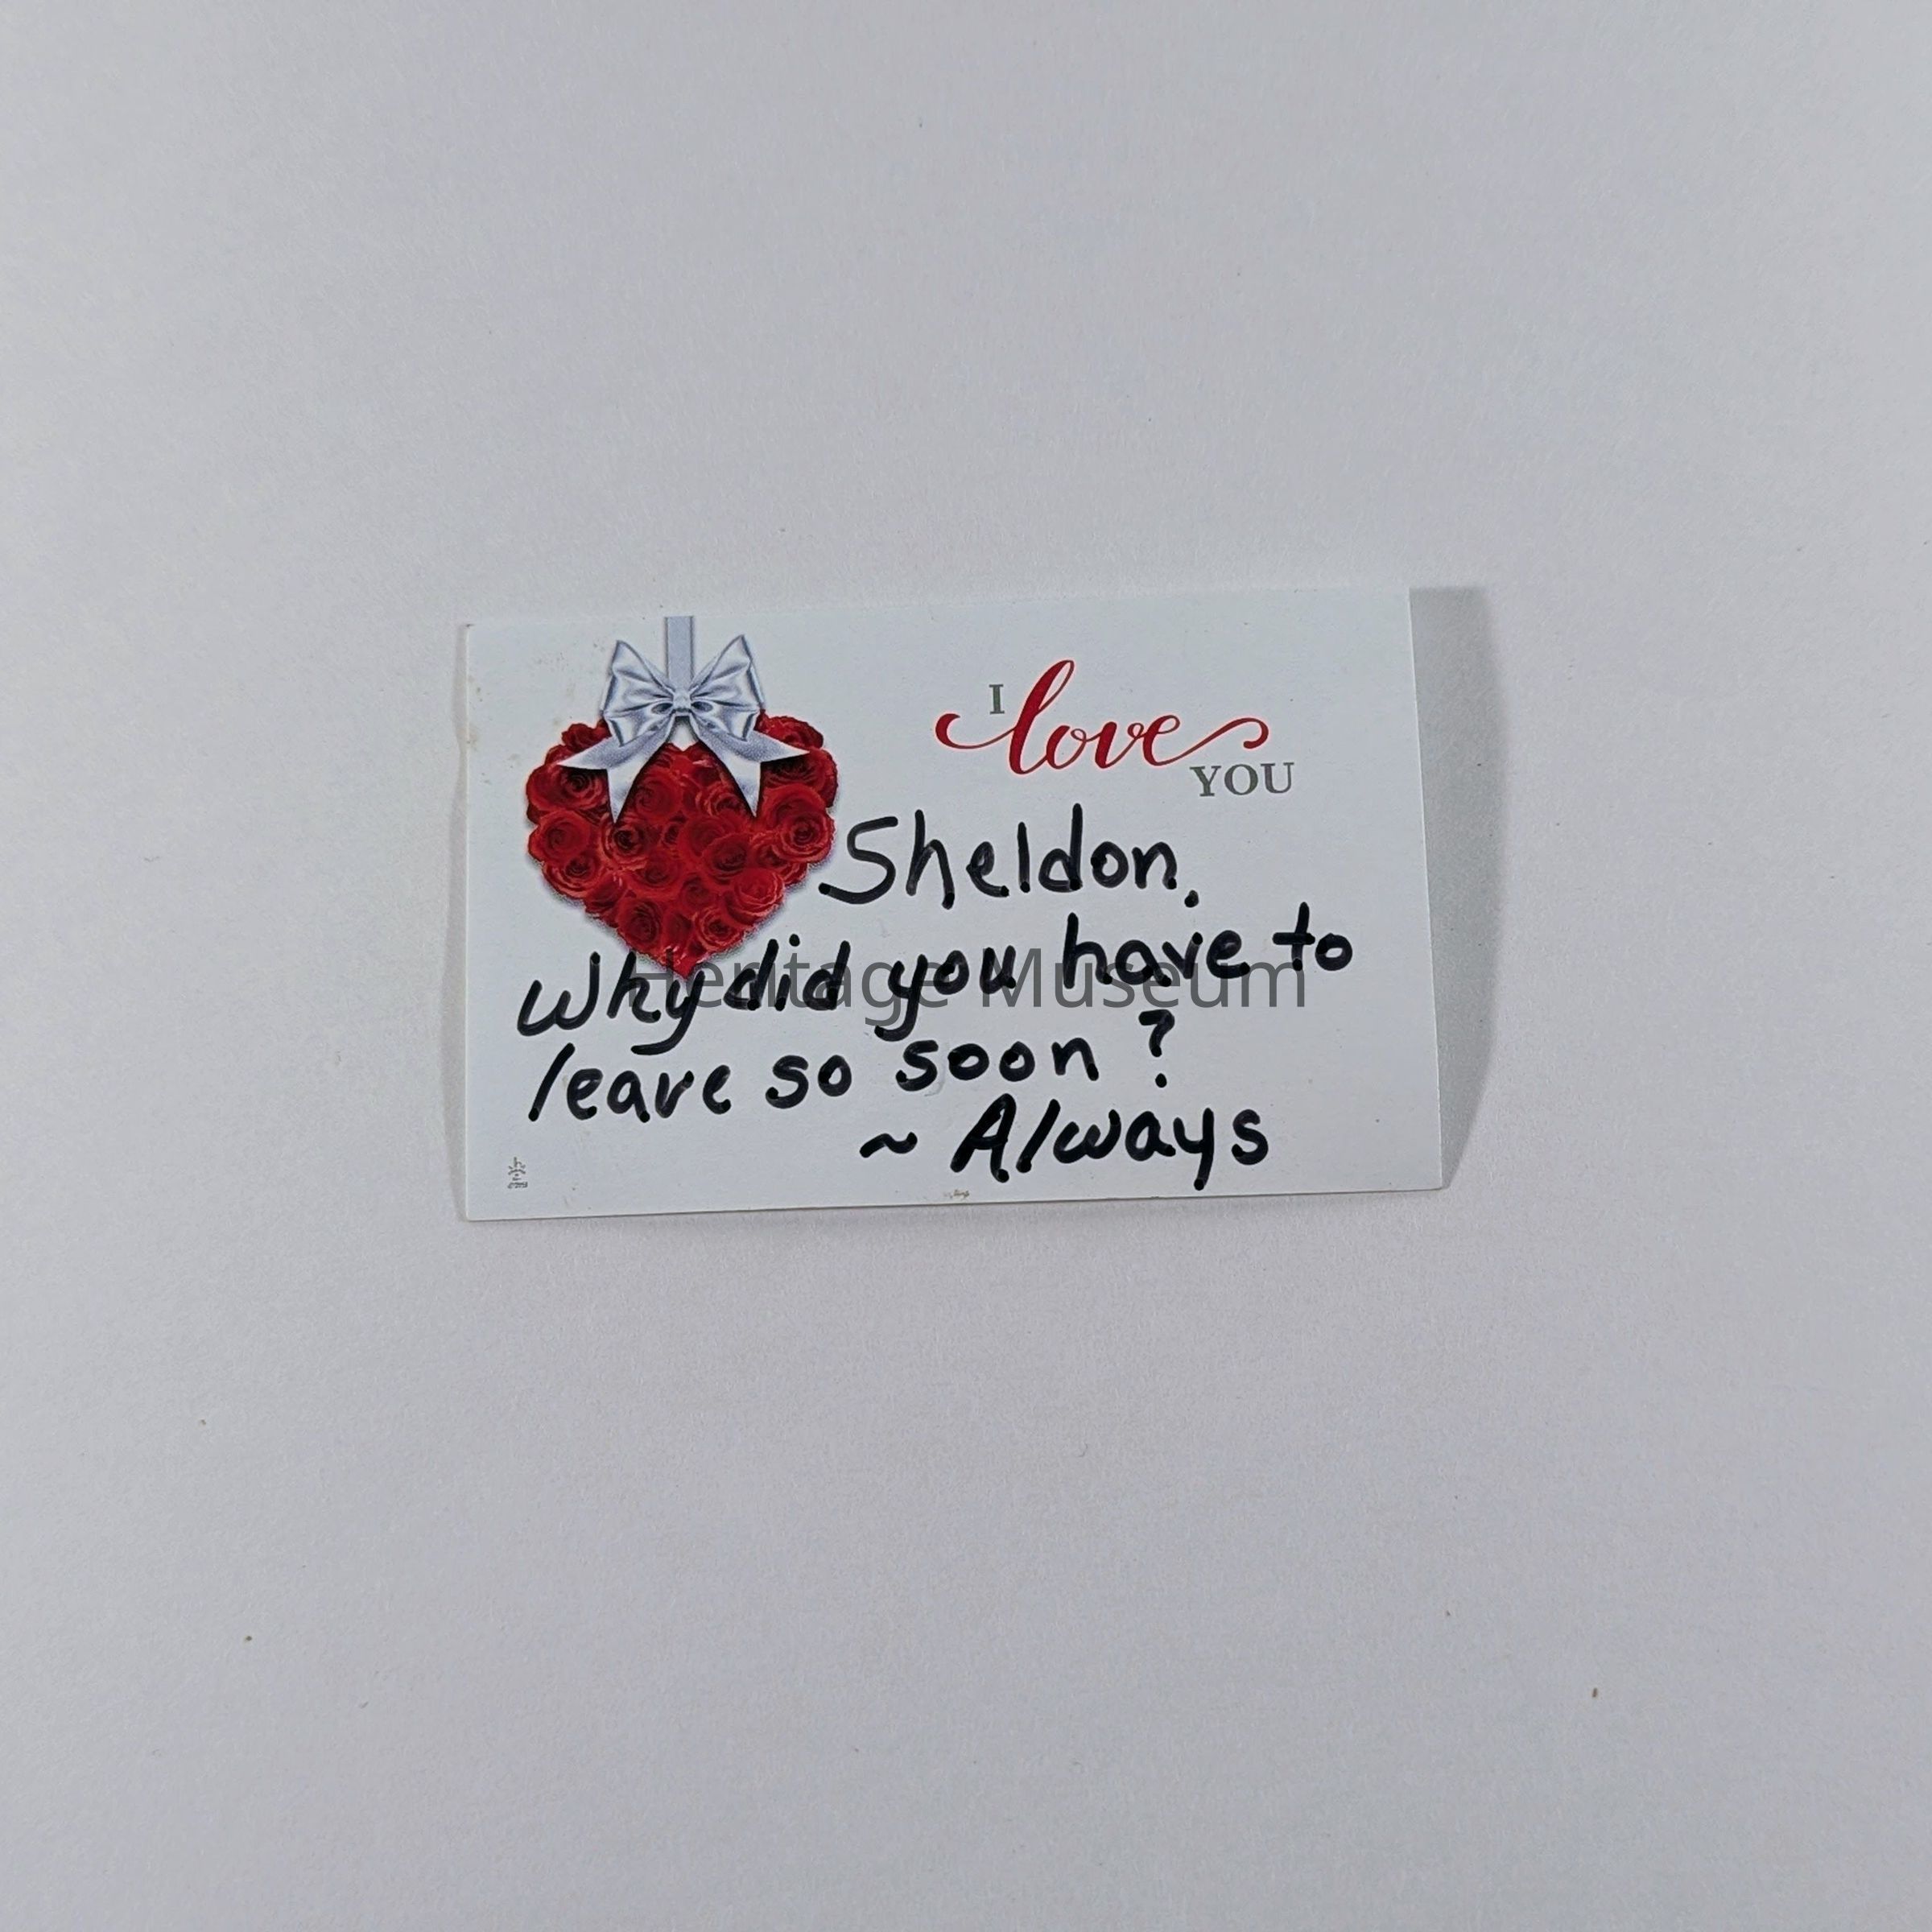 I love YOU
Sheldon,
Why did you have to
leave so soon?
~ Always
Heritage Museum